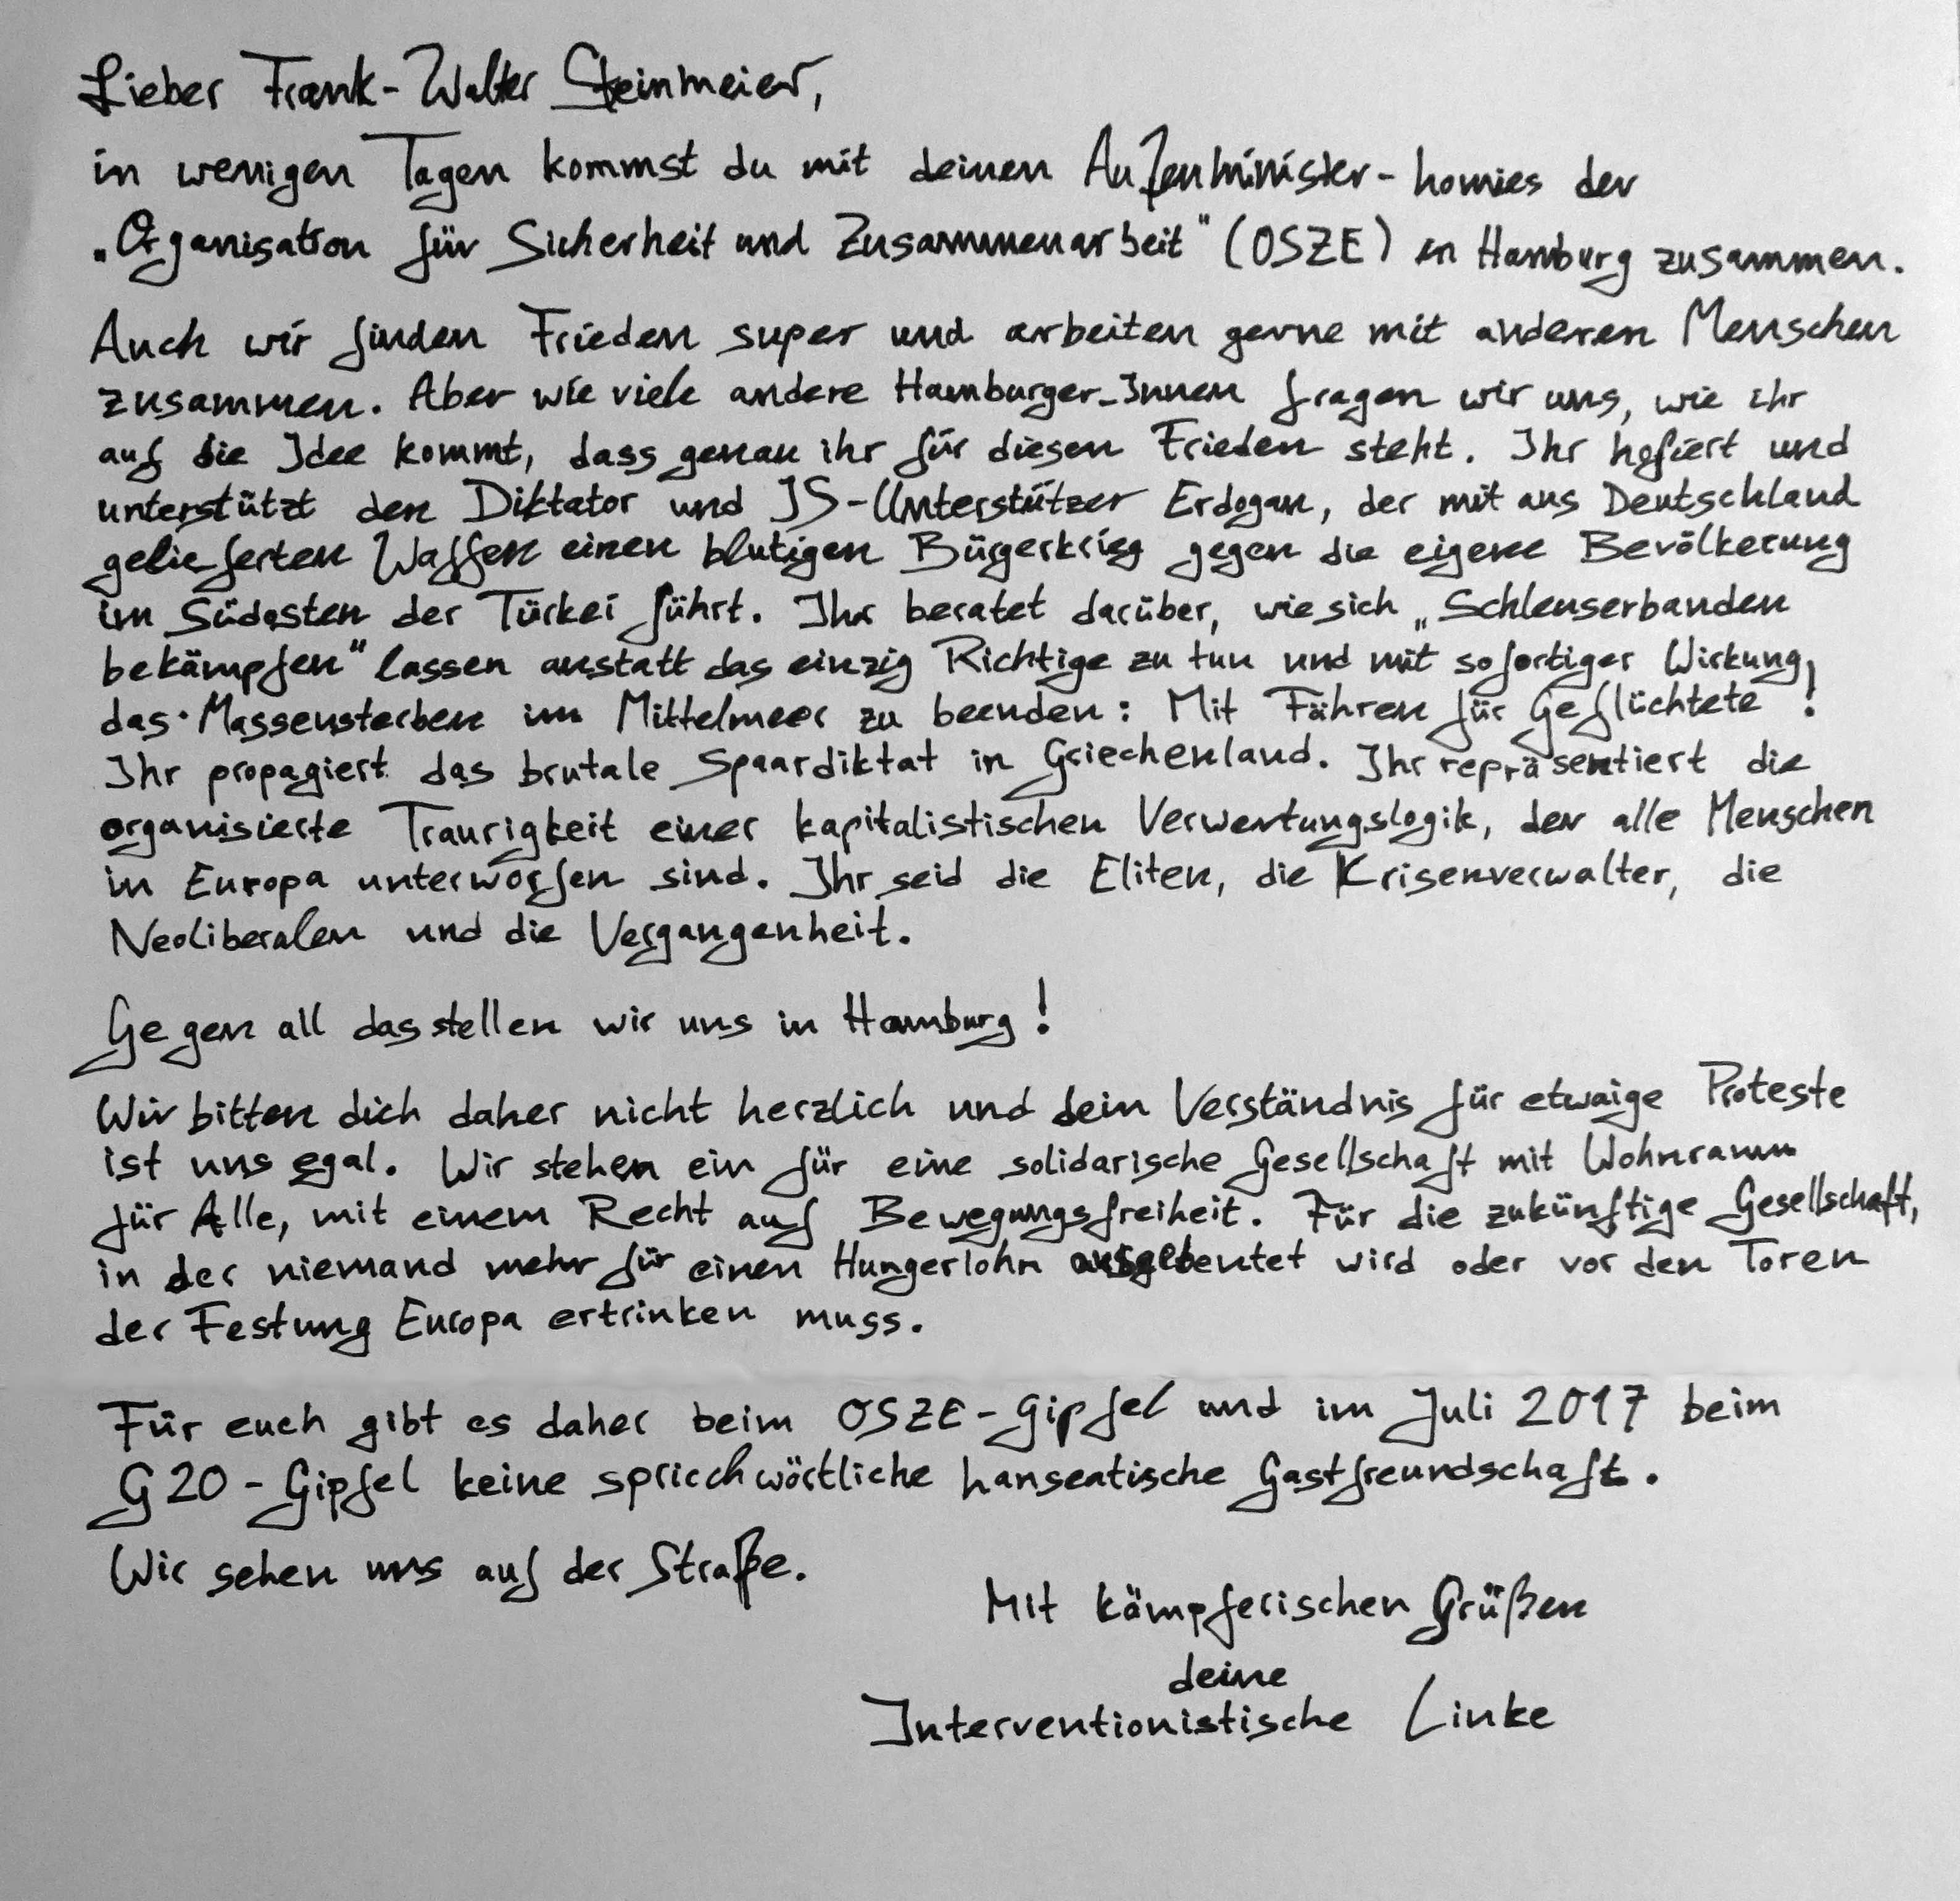 Lieber Frank-Walter Steinmeier,
in wenigen Tagen kommst du mit deinen Außenminister-homies der
„Organisation für Sicherheit und Zusammenarbeit" (OSZE) in Hamburg zusammen.
Auch wir finden Frieden super und arbeiten gerne mit anderen Menschen
zusammen. Aber wie viele andere Hamburger_Innen fragen wir uns, wie ihr
auf die Idee kommt, dass genau ihr für diesen Frieden steht. Ihr hofiert und
unterstützt den Diktator und IS-Unterstützer Erdogan, der mit aus Deutschland
gelieferten Waffen einen blutigen Bürgerkrieg gegen die eigene Bevölkerung
im Südosten der Türkei führt. Ihr beratet darüber, wie sich „Schleuserbanden
bekämpfen" lassen anstatt das einzig Richtige zu tun und mit sofortiger Wirkung,
das Massensterben im Mittelmeer zu beenden: Mit Fähren für Geflüchtete!
Ihr propagiert das brutale Spaardiktat in Griechenland. Ihr repräsentiert die
organisierte Traurigkeit einer kapitalistischen Verwertungslogik, der alle Menschen
in Europa unterworfen sind. Ihr seid die Eliten, die Krisenverwalter, die
Neoliberalen und die Vergangenheit.
Gegen all das stellen wir uns in Hamburg!
Wir bitten dich daher nicht herzlich und dein Verständnis für etwaige Proteste
ist uns egal. Wir stehen ein für eine solidarische Gesellschaft mit Wohnraum
für Alle, mit einem Recht auf Bewegungsfreiheit. Für die zukünftige Gesellschaft,
in der niemand mehr für einen Hungerlohn ausgebeutet wird oder vor den Toren
der Festung Europa ertrinken muss.
Für euch gibt es daher beim OSZE-Gipfel und im Juli 2017 beim
G20-Gipfel keine spricchwörtliche hanseatische Gastfreundschaft.
Wir sehen uns auf der Straße.
Mit kämpferischen Grüßen
deine
Interventionistische Linke